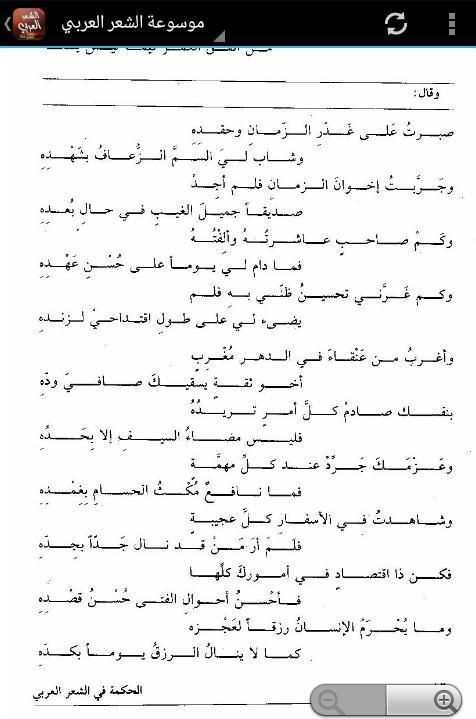 موسوعة الشعر العربي
وقال:
صبرتُ عَلى غَدْرِ الزّمانِ وحقدِهِ
وشاب ليَ السمَّ الزُّعافُ بشَهْدِهِ
وجَرَّبتُ إخوانَ الزمانِ فلم أجِدْ
صديقاً جميلَ الغيبِ في حالِ بُعدِهِ
وكَمْ صاحبٍ عاشرتُهُ وألِفْتُهُ
فما دام لي يوماً على حُسْنِ عَهْدِهِ
وكم غَرَّني تحسينُ ظنّي بهِ فلم
يضىء لي على طولِ اقتداحيْ لزندهِ
وأغربُ من عَنْقاءَ في الدهرِ مُغْرِبٍ
أخو ثقةٍ يسقيكَ صافيَ ودّهِ
بنفسك صادمْ كلَّ أمرٍ تريدُهُ
فليس مضاءُ السيفِ إلا بِحَدِّهِ
وعَزمَكَ جَرِّدْ عند كلِّ مهمَّةٍ
فما نافعٌ مُكْثُ الحسامِ بِغِمْدِهِ
وشاهدتُ في الأسفارِ كلَّ عجيبةٍ
فلم أرَ مَنْ قد نال جَدّاً بجدّهِ
فكن ذا اقتصادٍ في أمورِكَ كلِّها
فأحْسنُ أحوالِ الفتى حُسْنُ قصْدِهِ
وما يُحْرَمُ الإنسانُ رزقاً لعَجْزِهِ
كما لا ينالُ الرزقُ يوماً بكدّهِ
الحكمة في الشعر العربي